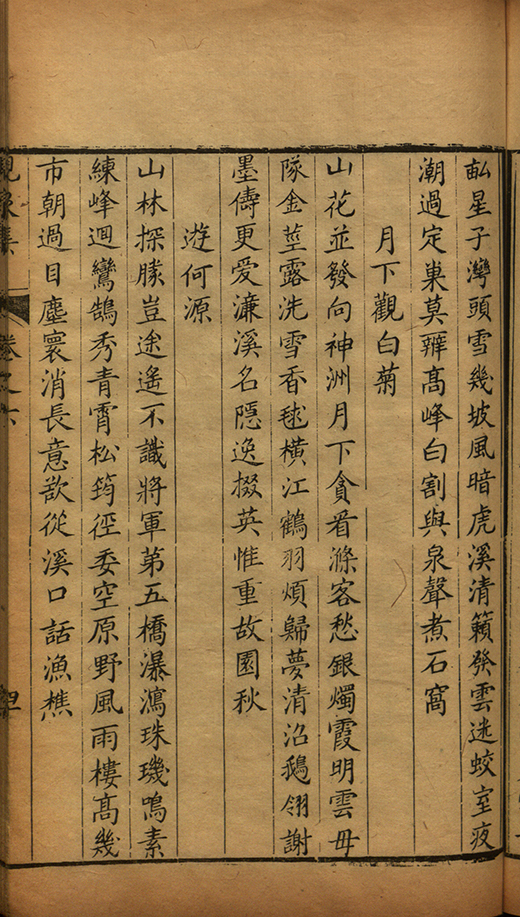 畝星子灣頭雪幾坡風暗虎溪清籟發雲迷蛟室夜
潮過定巢莫辨高峰白割與泉聲煮石窩
月下觀白菊
山花並發向神洲月下貪看滌客愁銀燭霞明雲母
隊金莖露洗雪香毬橫江鶴羽煩歸夢清沼鵝翎謝
墨儔更愛濂溪名隱逸掇英惟重故園秋
遊何源
山林探勝豈途遙不識將軍第五橋瀑瀉珠璣鳴素
練峰迴鸞鵠秀青霄松筠徑委空原野風雨樓高幾
市朝過目塵寰消長意欲從溪口話漁樵
集 卷之六